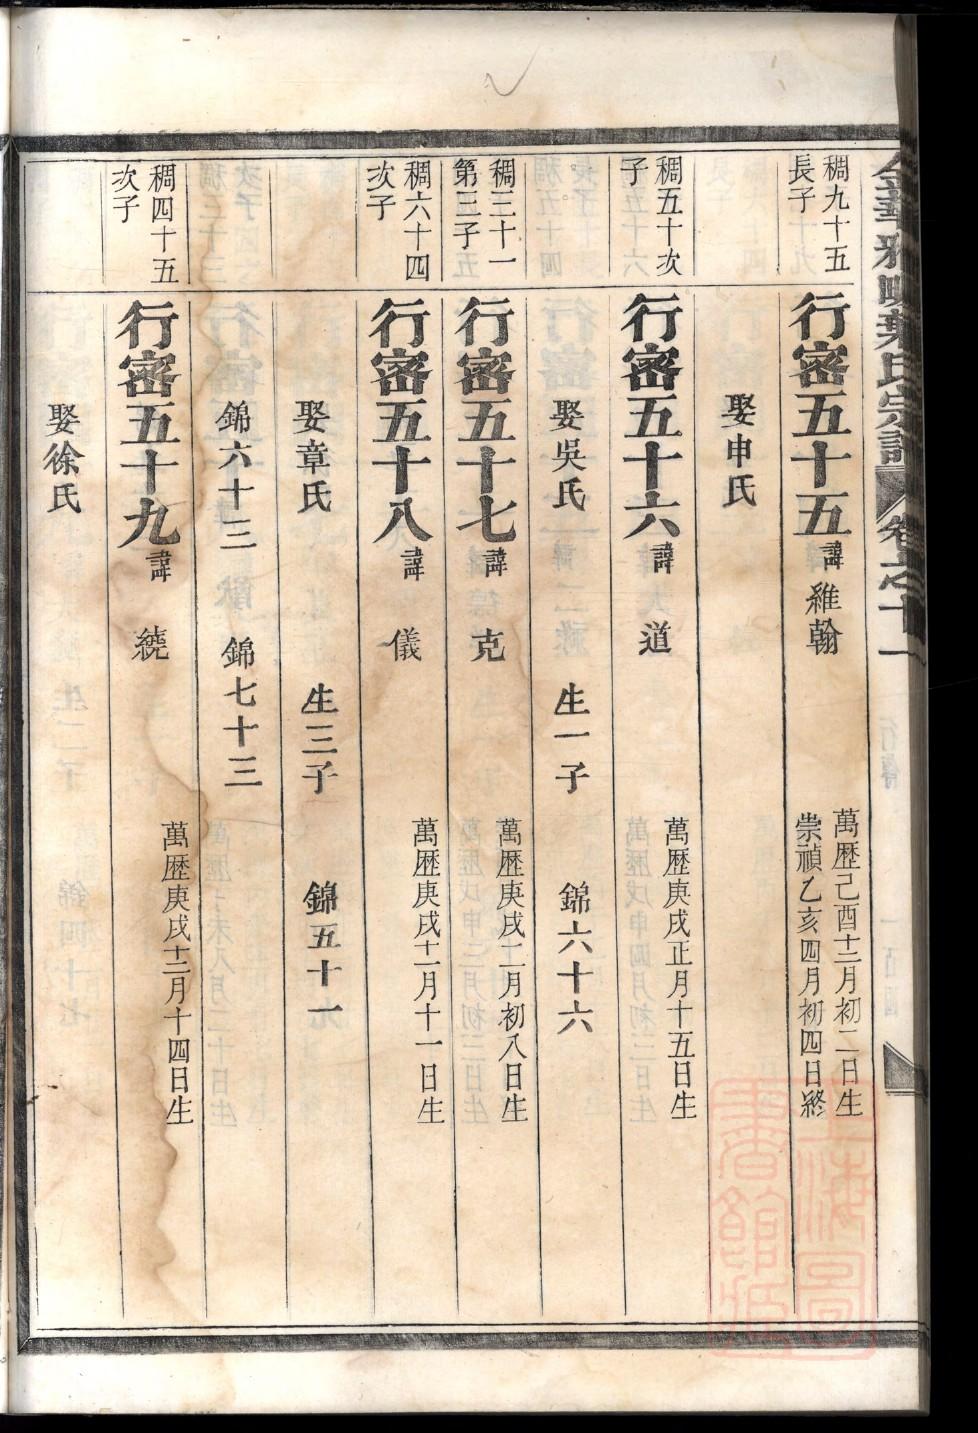 金華雅畈葉氏宗譜 卷之十一
稠九十五
長子
行密五十五 諱 維翰
萬歷己酉十二月初二日生
崇禎乙亥四月初四日終
娶申氏
稠五十次
子
行密五十六 諱 道
萬歷庚戌正月十五日生
娶吳氏 生一子 錦六十六
稠三十一
第三子
行密五十七 諱 克
萬歷庚戌二月初八日生
稠六十四
次子
行密五十八 諱 儀
萬歷庚戌十二月十一日生
娶章氏 生三子 錦五十一
錦六十三 錦七十三
稠四十五
次子
行密五十九 諱 繞
萬歷庚戌十二月十四日生
娶徐氏